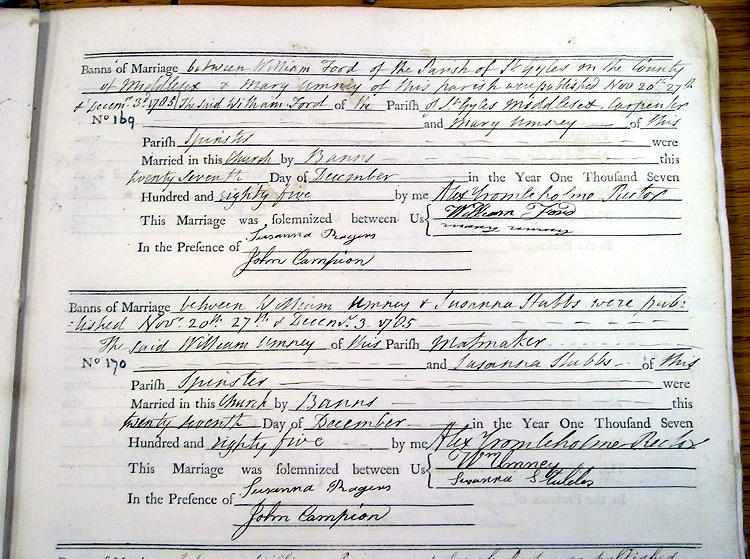 Banns of Marriage between William Ford of the Parish of St Gyles in the County
of Middlesex & Mary Umney of this parish were published Nov 20th 27th
& Decemr 3d 1785 The said William Ford of the Parish of St Gyles Middlesex Carpenter
No 169 and Mary Umney of this
Parish Spinster were
Married in this Church by Banns this
twenty seventh Day of December in the Year One Thousand Seven
Hundred and eighty five by me Alex Rector
This Marriage was solemnized between Us William Ford
mary umney
In the Presence of Susanna Rogers
John Campion
Banns of Marriage between William Umney & Susanna Stubbs were pub:
:lished Novr 20th 27th & Decemr 3 1785
The said William Umney of this Parish Matmaker
No 170 and Susanna Stubbs of this
Parish Spinster were
Married in this Church by Banns this
twenty seventh Day of December in the Year One Thousand Seven
Hundred and eighty five by me Alex Rector
This Marriage was solemnized between Us Wm Umney
Susanna Stubbs
In the Presence of Susanna Rogers
John Campion